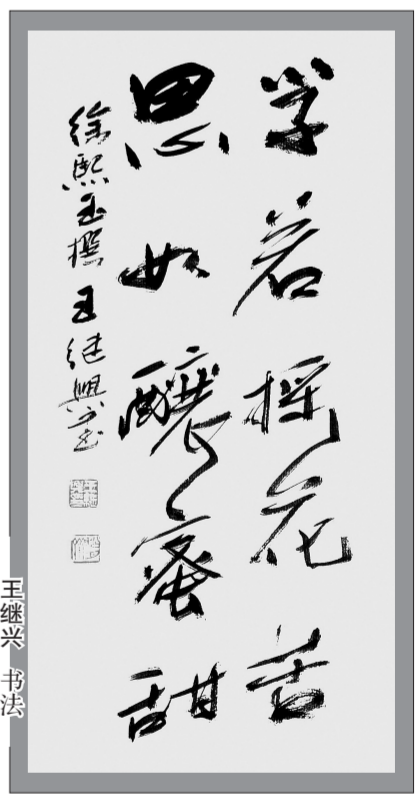 学若採花苦
思如釀蜜甜
徐熙玉撰 王继興书
王继兴 书法